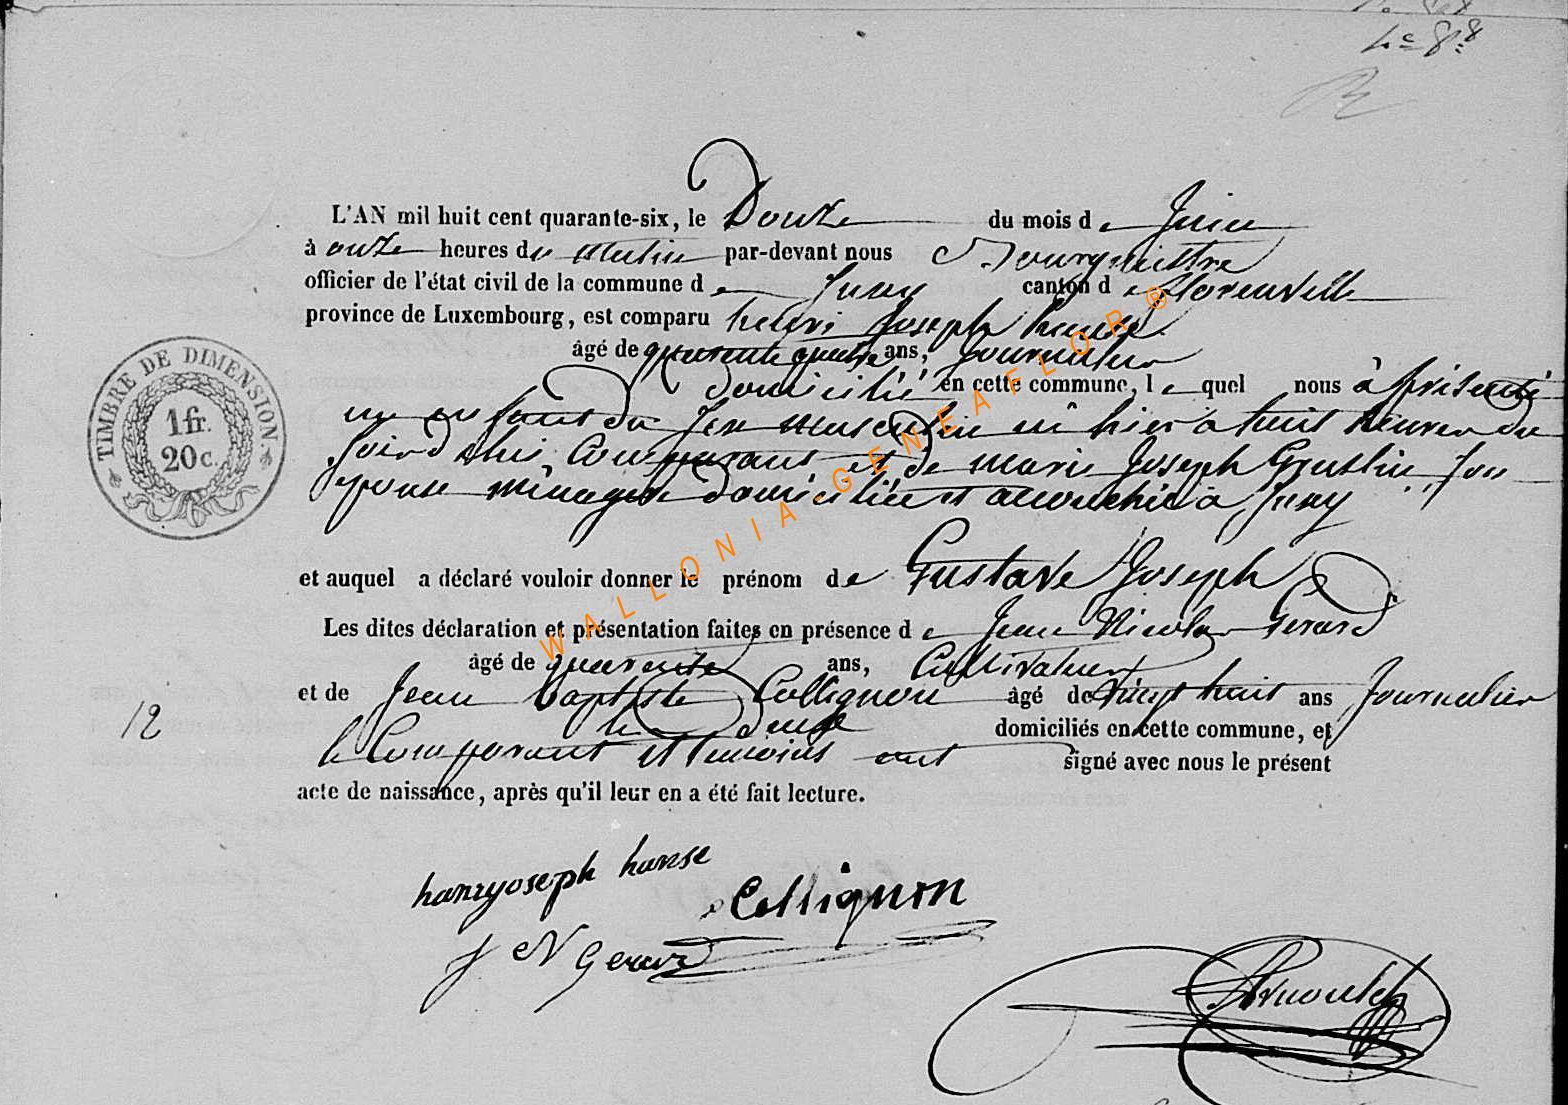 L'AN mil huit cent quarante-six, le Douze du mois de Juin
à onze heures du matin par-devant nous Bourgmettre
officier de l'état civil de la commune de Izel canton de florenville
province de Luxembourg, est comparu henri Joseph hanse
âgé de quarente quatre ans, Journalier
domicilié en cette commune, le quel nous à présenté
un enfant du Sex masculin né hier a huit heures du
soir de lui Comparant et de marie Joseph Goslin Son
epouse ménagere domiciliée et accouchée à
et auquel a déclaré vouloir donner le prénom de Gustave Joseph
Les dites déclaration et présentation faites en présence de Jean Nicolas Gerard
âgé de quarente ans, Cultivateur
et de Jean baptiste Collignon âgé de vingt huit ans Journalier
12
domiciliés en cette commune, et
le Comparant et temoins ont signé avec nous le présent
acte de naissance, après qu'il leur en a été fait lecture.
TIMBRE DE DIMENSION.
1 fr.
20 c.
hanryoseph hanse
Collignon
J N Gerard
Arnould
WALLONIA-GENEAFLOR®